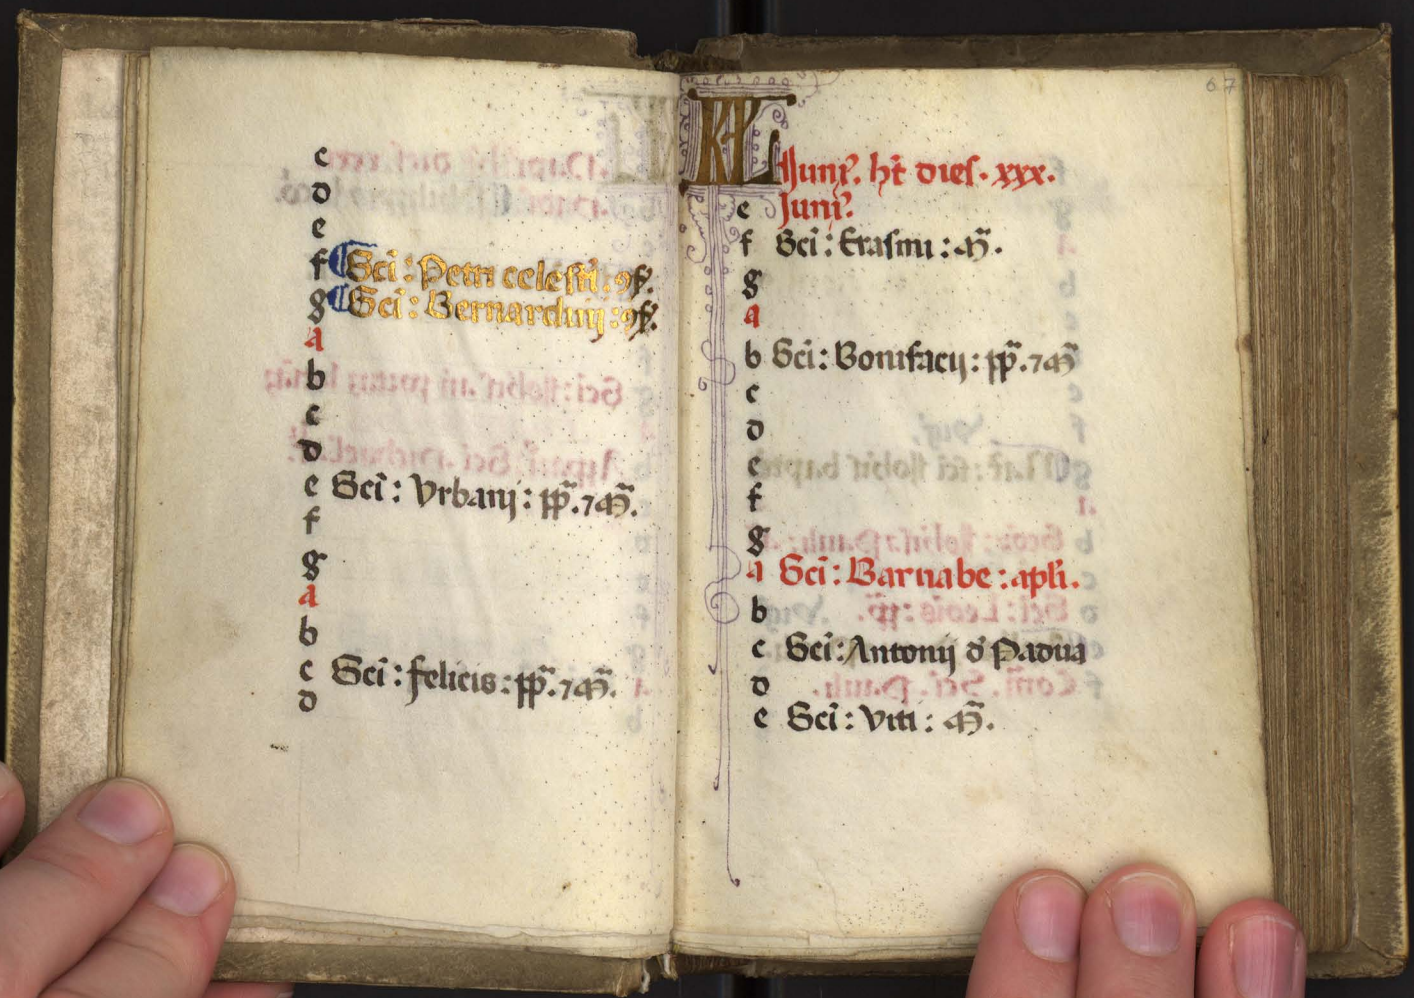 c
d
e
f Sci̅: Petri celesti̅: ꝯf.
g Sci̅: Bernardinij: ꝯf.
a
b
c
d
e Sci̅: Vrbanij: pp̅. ⁊ M̅.
f
g
a
b
c Sci̅: felicis: pp̅. ⁊ M̅.
d
67
KL Junj̉. ht̅ dies. xxx.
e Junj̉.
f Sci̅: Erasmi: M̅.
g
a
b Sci̅: Bonifacij: pp̅. ⁊ M̅
c
d
e
f
g
a Sci̅: Barnabe: apli̅.
b
c Sci̅: Antonij d̉ Padua
d
e Sci̅: Viti: M̅.